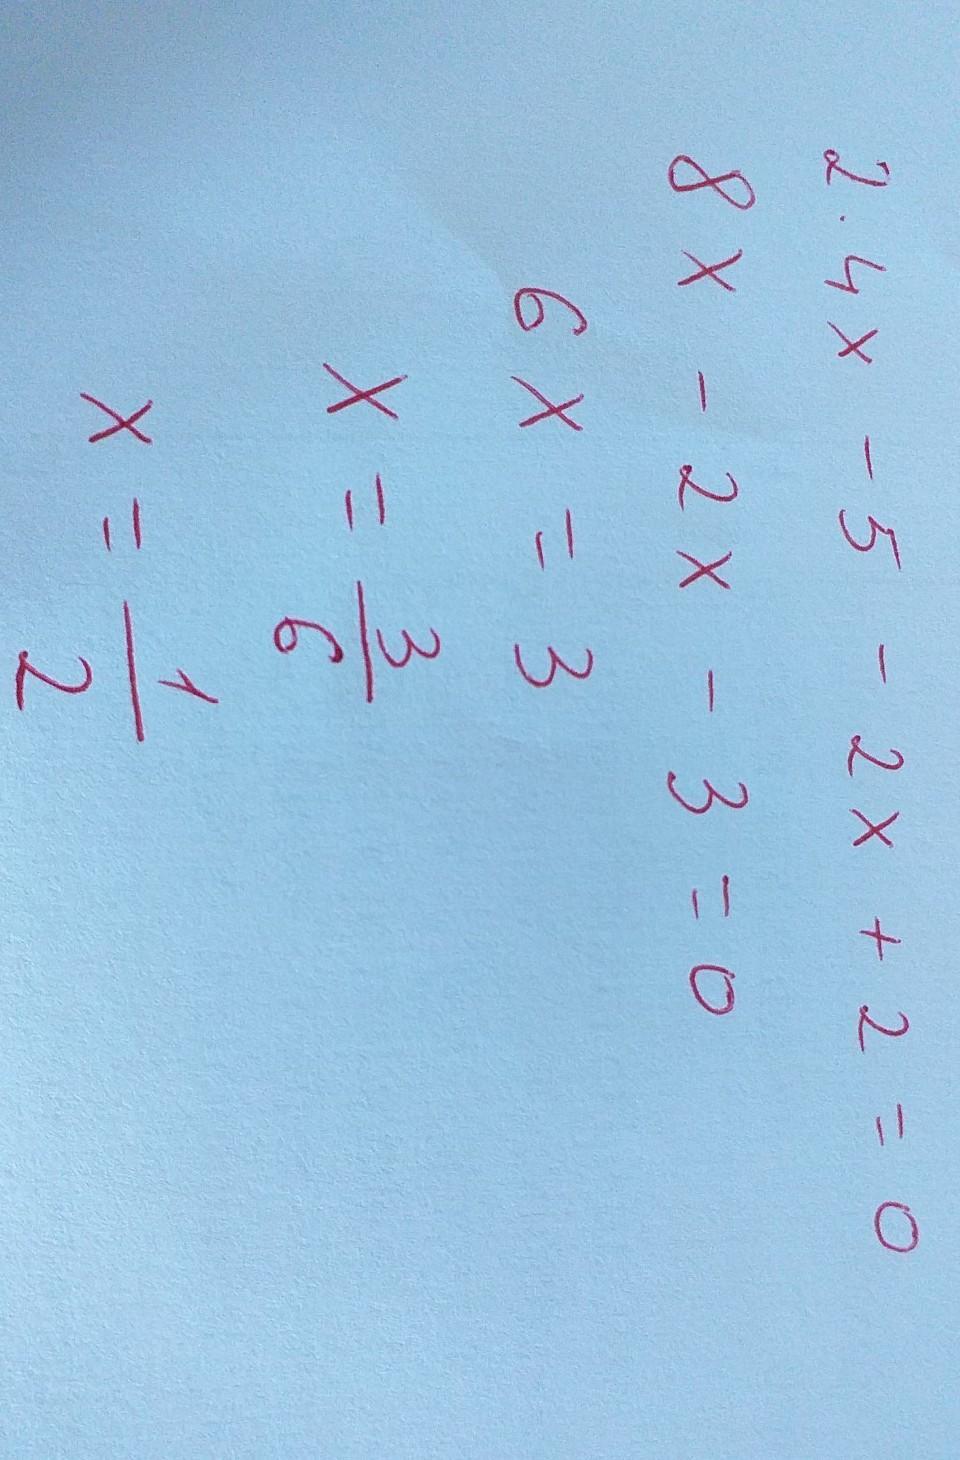 2.4x - 5 - 2x + 2 = 0
8x - 2x - 3 = 0
6x = 3
x = 3/6
x = 1/2